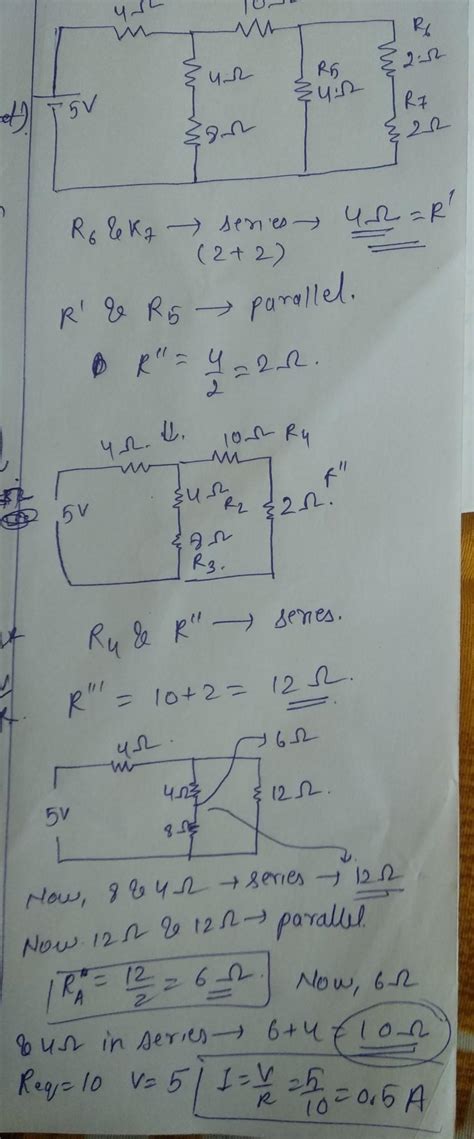 4Ω 10Ω
R6
4Ω R5 2Ω
5V 4Ω R7
8Ω 2Ω
R6 & R7 → series → 4Ω = R'
(2+2)
R' & R5 → parallel.
R'' = 4/2 = 2Ω.
4Ω. ⇓. 10Ω R4
4Ω R''
5V R2 2Ω.
8Ω
R3.
R4 & R'' → series.
R''' = 10+2 = 12Ω.
4Ω. 6Ω
4Ω 12Ω.
5V
8Ω
Now, 8 & 4Ω → series → 12Ω
Now 12Ω & 12Ω → parallel.
RA = 12/2 = 6Ω. Now, 6Ω
& 4Ω in series → 6+4 = 10Ω
Req = 10 V = 5 I = V/R = 5/10 = 0.5 A